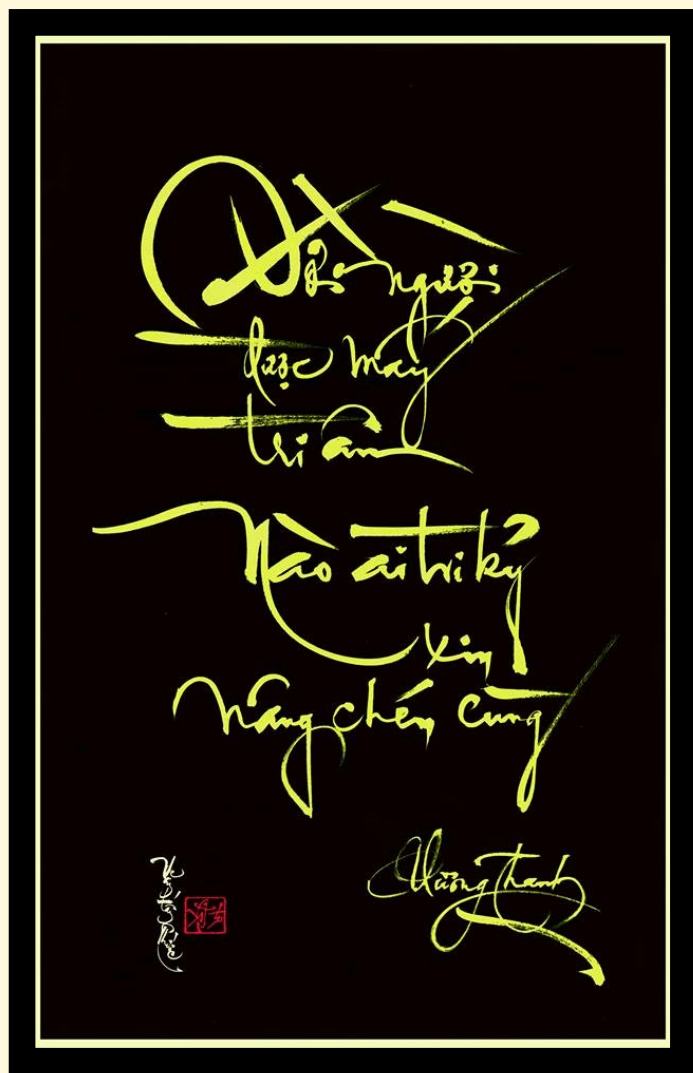 Đời người
được mấy
tri âm
Nào ai tri kỷ
xin
nâng chén cùng
Mường Thanh